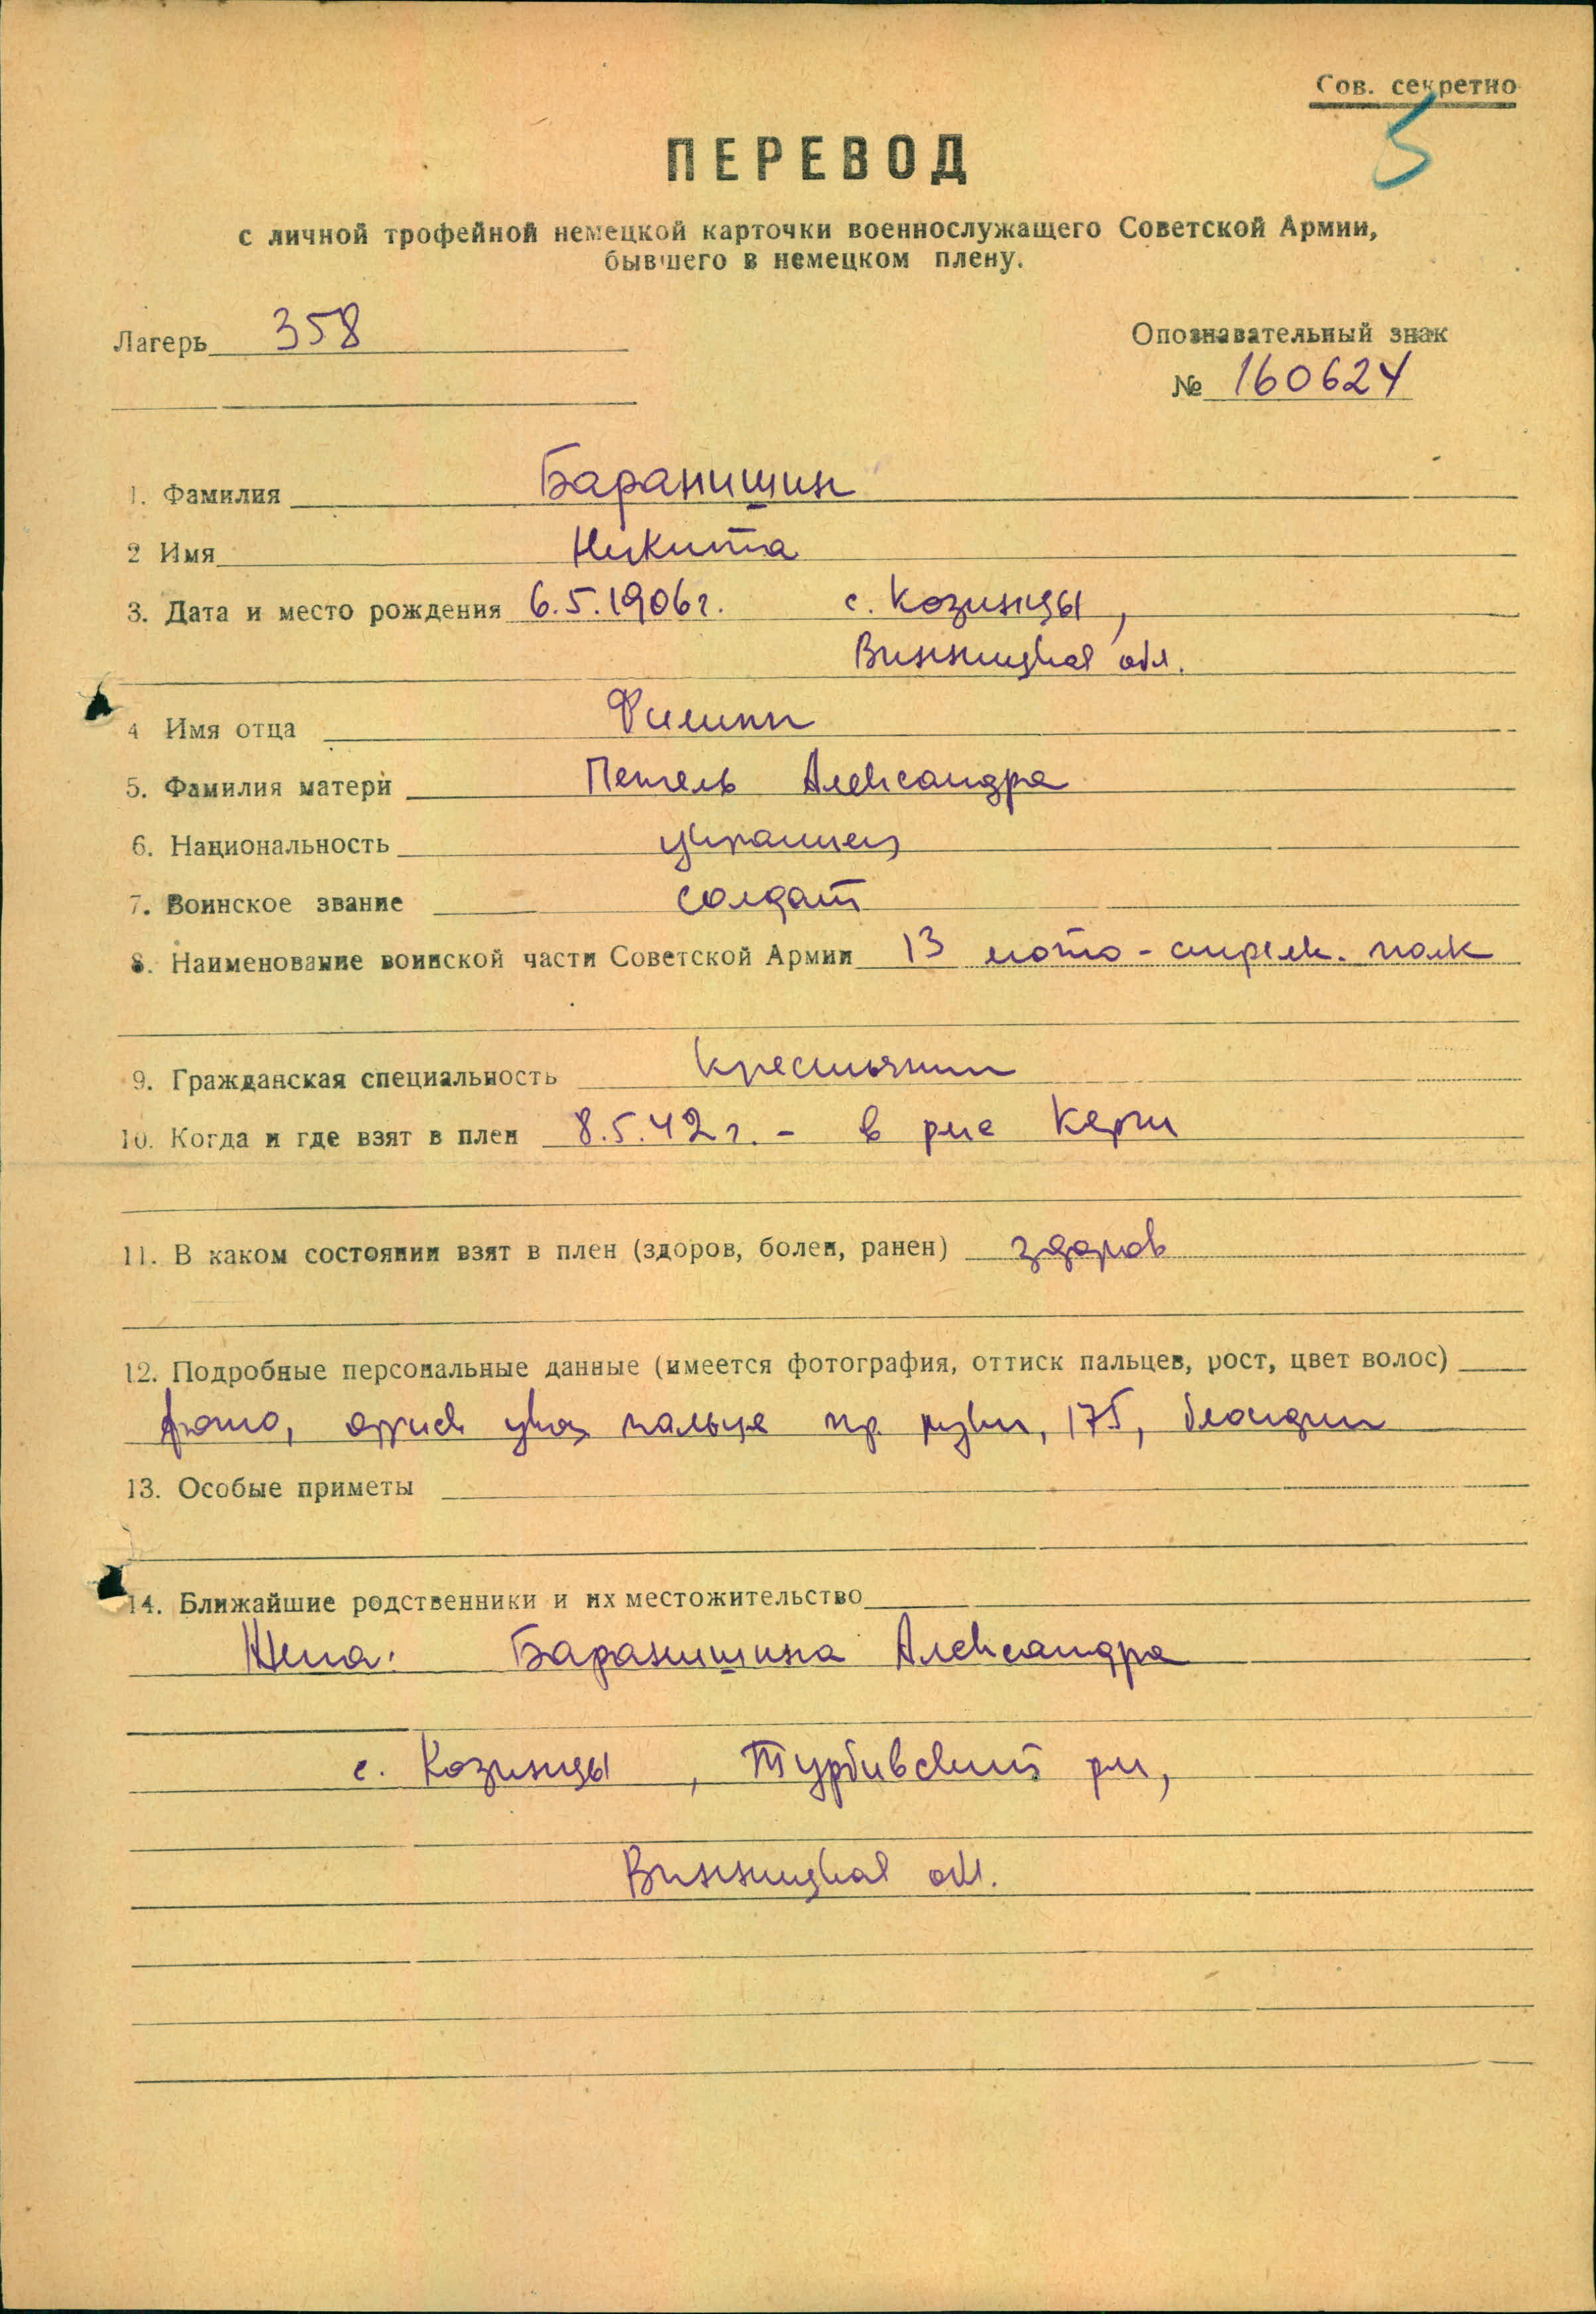 Сов. секретно
5
ПЕРЕВОД
с личной трофейной немецкой карточки военнослужащего Советской Армии,
бывшего в немецком плену.
Лагерь 358
Опознавательный знак
№ 160624
1. Фамилия Баранишин
2 Имя Никита
3. Дата и место рождения 6.5.1906г. с. Козинцы,
Винницкая обл.
4 Имя отца Филипп
5. Фамилия матери Александра
6. Национальность украинец
7. Воинское звание солдат
8. Наименование воинской части Советской Армии 13 мото-стрелк. полк
9. Гражданская специальность крестьянин
10. Когда и где взят в плен 8.5.42г. - в р-не Керчи
11. В каком состоянии взят в плен (здоров, болен, ранен) здоров
12. Подробные персональные данные (имеется фотография, оттиск пальцев, рост, цвет волос)
фото, оттиск указ пальца пр. руки, 175, блондин
13. Особые приметы
14. Ближайшие родственники и их местожительство
Жена: Баранишина Александра
с. Козинцы, Турбивский р-н,
Винницкая обл.